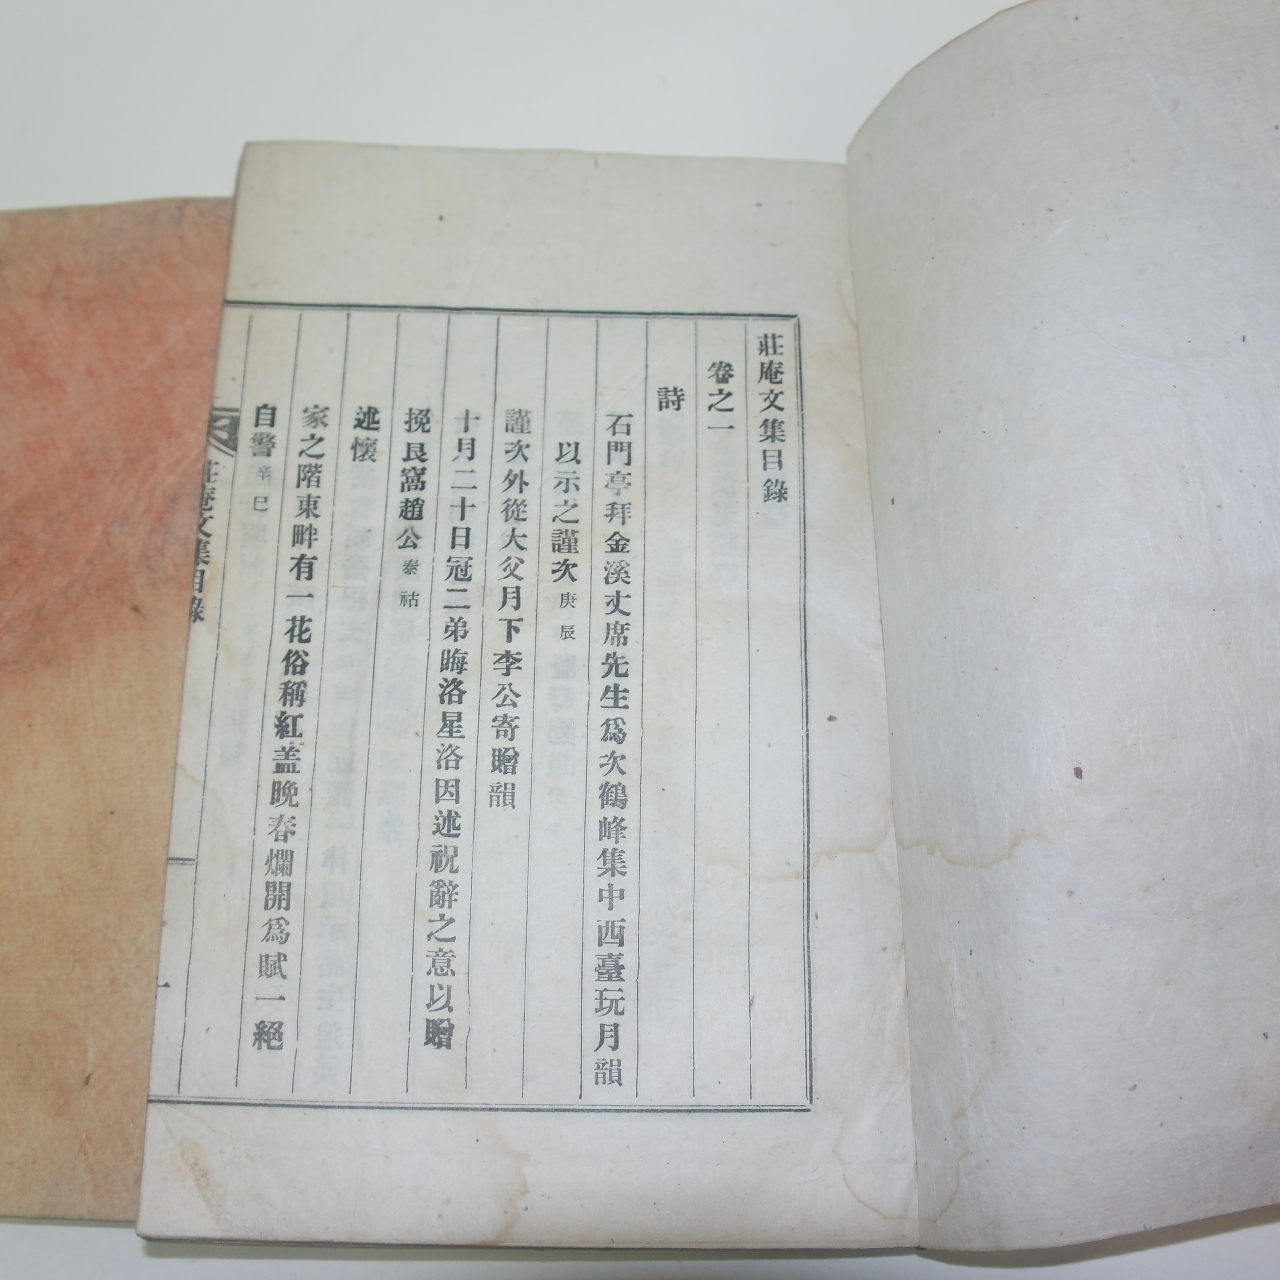 莊庵文集目錄
卷之一
詩
石門亭拜金溪丈席先生爲次鶴峰集中西臺玩月韻
以示之謹次庚辰
謹次外從大父月下李公寄贈韻
十月二十日冠二弟晦洛星洛因述祝辭之意以贈
挽艮窩趙公泰祜
述懷
家之階東畔有一花俗稱紅盖晚春爛開爲賦一絕
自警辛巳
莊庵文集目錄
一